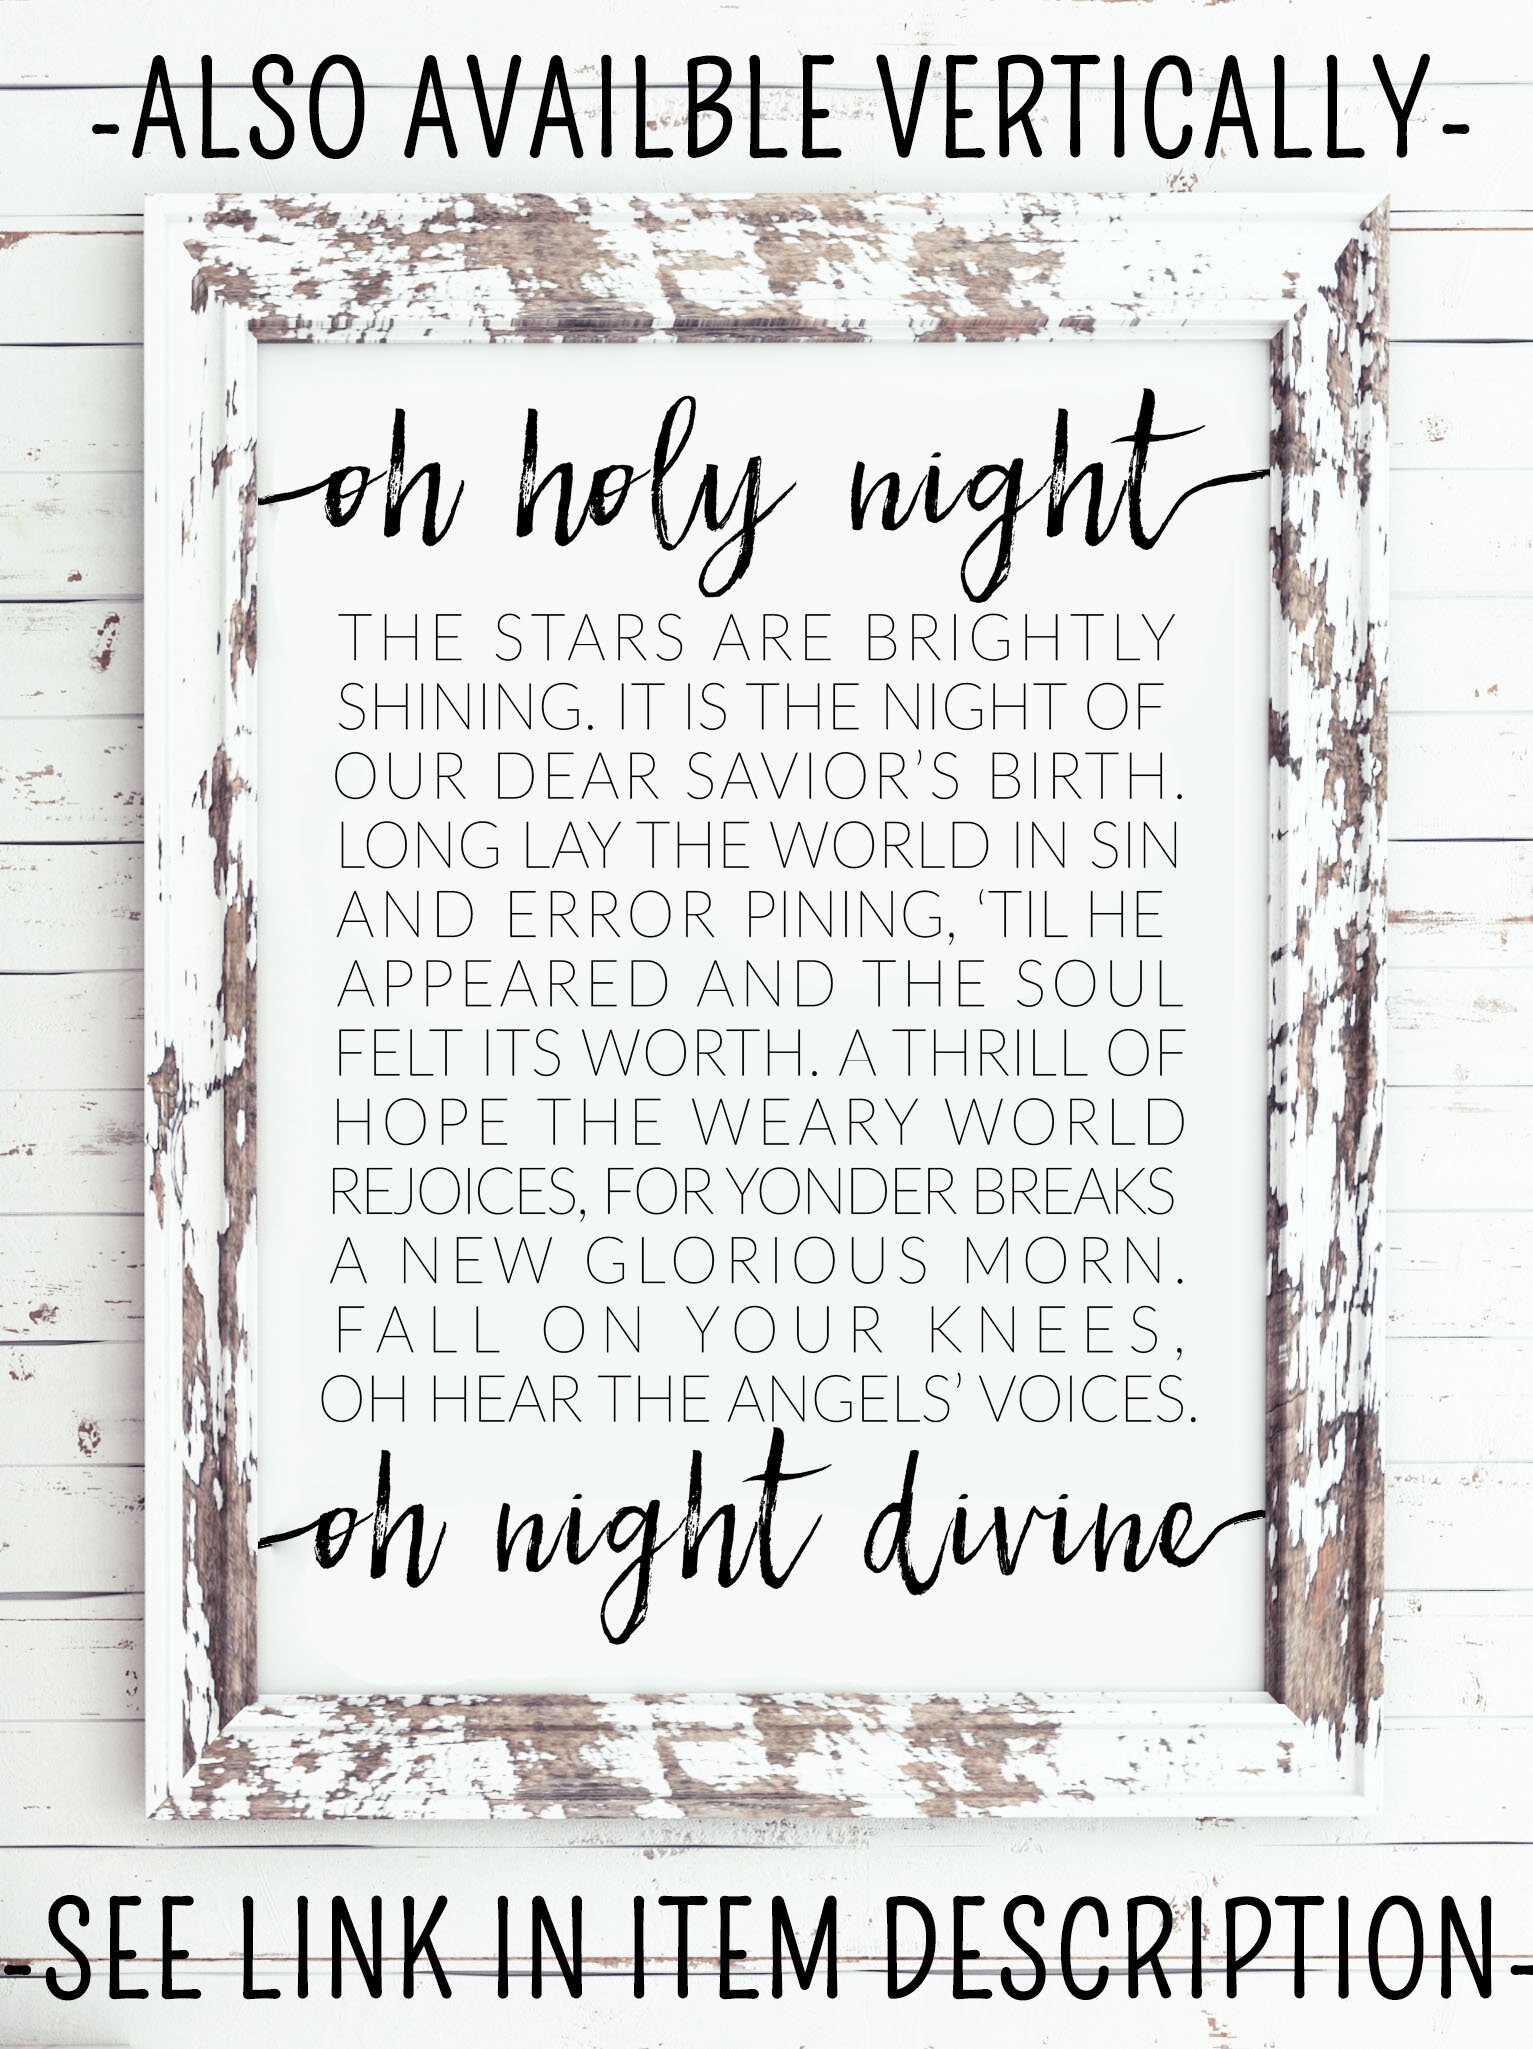 -ALSO AVAILBLE VERTICALLY-
oh holy night
THE STARS ARE BRIGHTLY
SHINING. IT IS THE NIGHT OF
OUR DEAR SAVIOR’S BIRTH.
LONG LAY THE WORLD IN SIN
AND ERROR PINING, ‘TIL HE
APPEARED AND THE SOUL
FELT ITS WORTH. A THRILL OF
HOPE THE WEARY WORLD
REJOICES, FOR YONDER BREAKS
A NEW GLORIOUS MORN.
FALL ON YOUR KNEES,
OH HEAR THE ANGELS’ VOICES.
oh night divine
-SEE LINK IN ITEM DESCRIPTION-